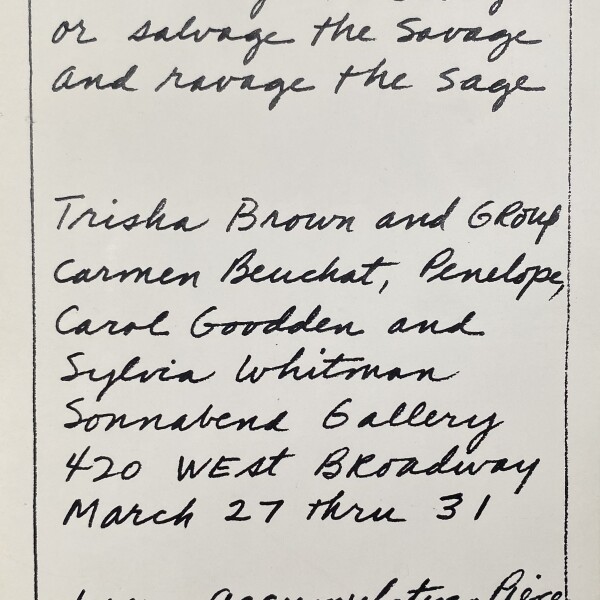 or salvage the Savage
and ravage the sage
Trisha Brown and GRoup
Carmen Beuchat, Penelope,
Carol Goodden and
Sylvia Whitman
Sonnabend Gallery
420 WESt BRoadway
March 27 thru 31
Piece